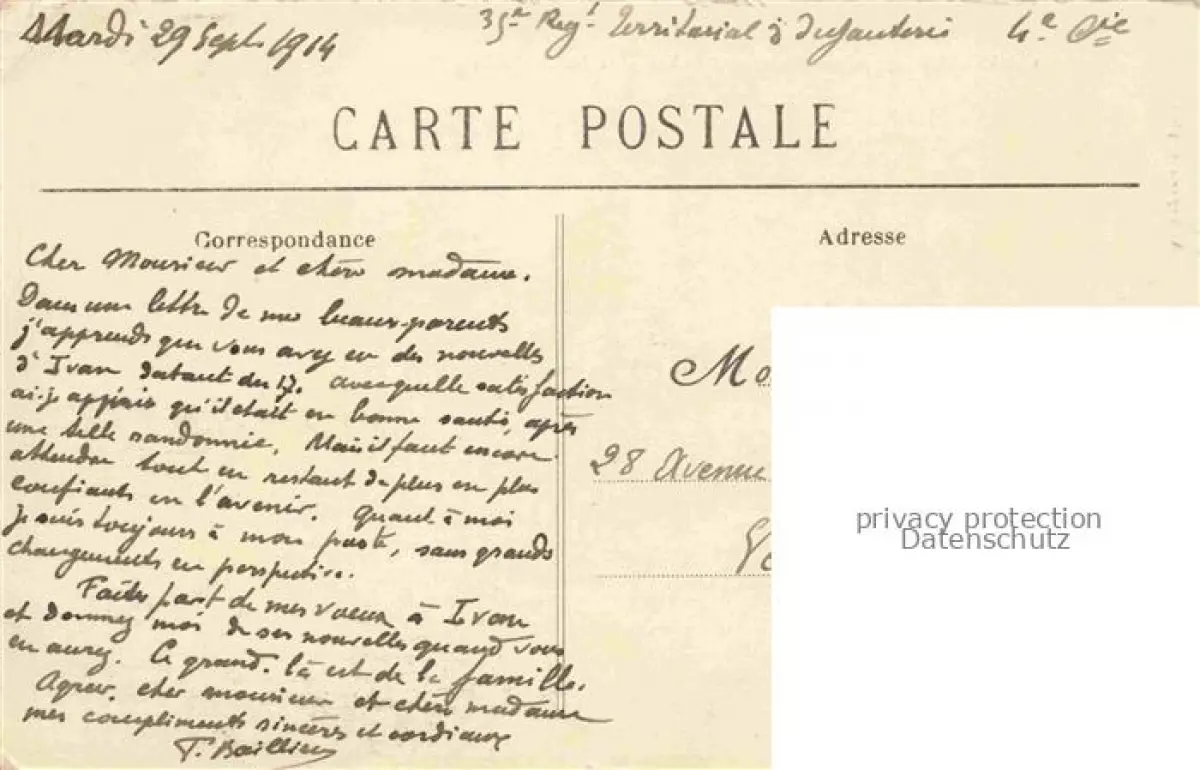 Mardi 29 Sept. 1914
35e Regt Territorial d'Infanterie 4e Cie
CARTE POSTALE
Correspondance
Adresse
Cher Monsieur et chère madame.
Dans une lettre de mes beaux-parents
j'apprends que vous avez eu des nouvelles
d'Ivan datant du 17. avec quelle satisfaction
ai-je appris qu'il était en bonne santé, après
une telle randonnée. Mais il faut encore
attendre tout en restant de plus en plus
confiants en l'avenir. Quant à moi
je suis toujours à mon poste, sans grands
changements en perspective.
Faites part de mes vœux à Ivan
et donnez moi de ses nouvelles quand vous
en aurez. Ce grand-là est de la famille.
Agréez, cher monsieur et chère madame
mes compliments sincères et cordiaux
28 Avenue
privacy protection
Datenschutz